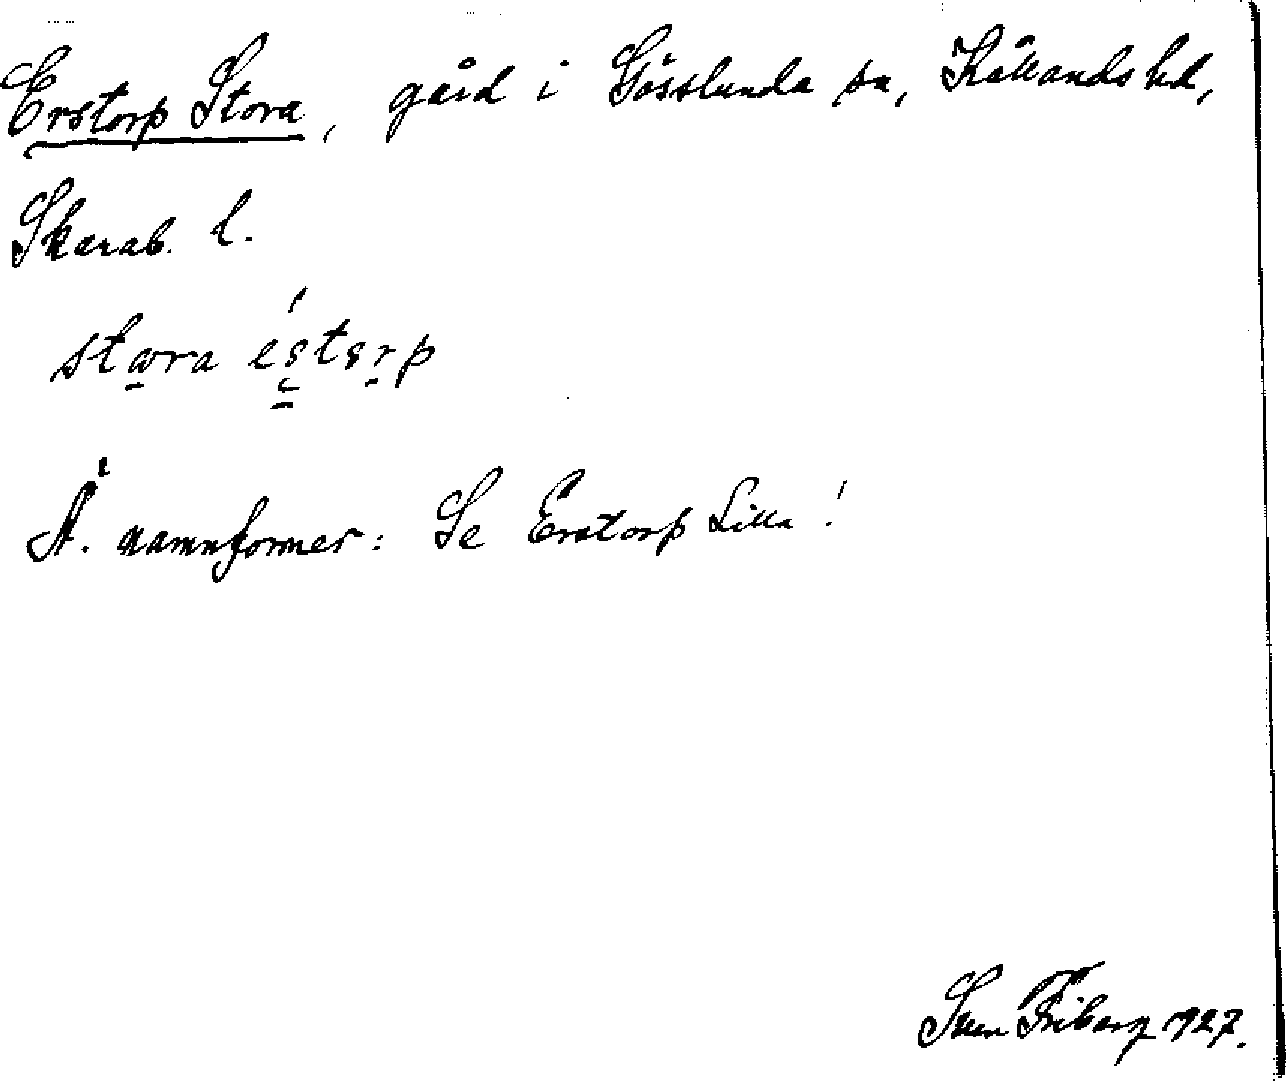 Erstorp Stora, gård i Gösslunda sn, Kållands hd,
Skarab. l.
stora éstorp
Ä. namnformer: Se Erstorp Lilla!
Sven Friberg 1927.